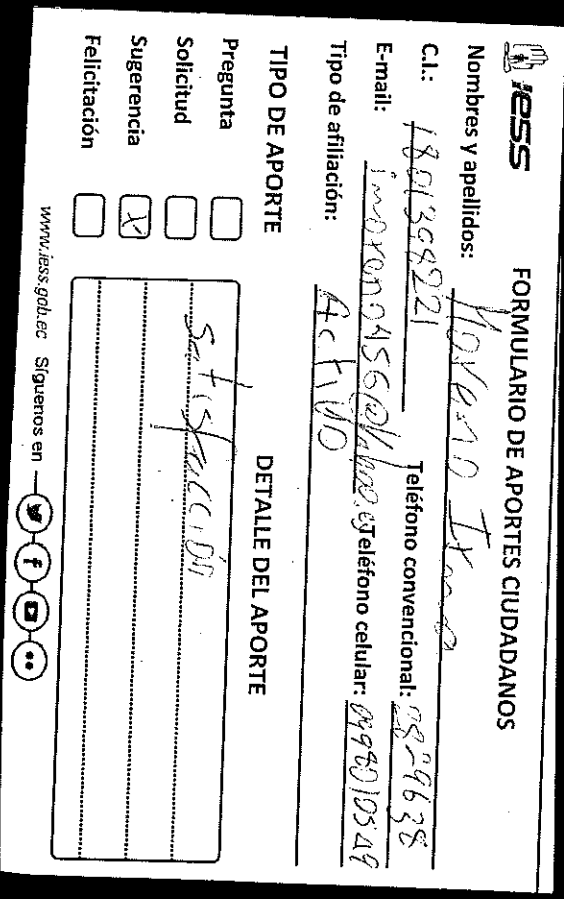 iess FORMULARIO DE APORTES CIUDADANOS
Nombres y apellidos: Moreno
C.I.: 1801398221 Teléfono convencional: 2829638
E-mail: imoreno456@yahoo.es Teléfono celular: 0998010549
Tipo de afiliación: Activo
TIPO DE APORTE
Pregunta
Solicitud
Sugerencia X
Felicitación
DETALLE DEL APORTE
Satisfacción
www.iess.gob.ec Síguenos en